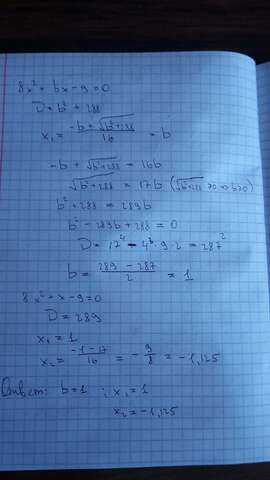 8x² + bx - 9 = 0
D = b² + 288
x₁ = (-b + √(b²+288)) / 16 = b
-b + √(b²+288) = 16b
√(b²+288) = 17b (√(b²+288) ≥0 ⇒ b≥0)
b² + 288 = 289b
b² - 289b + 288 = 0
D = 17⁴ - 4³·9·2 = 287²
b = (289 - 287) / 2 = 1
8x² + x - 9 = 0
D = 289
x₁ = 1
x₂ = (-1-17) / 16 = -9/8 = -1,125
Ответ: b=1 ; x₁ = 1
x₂ = -1,125